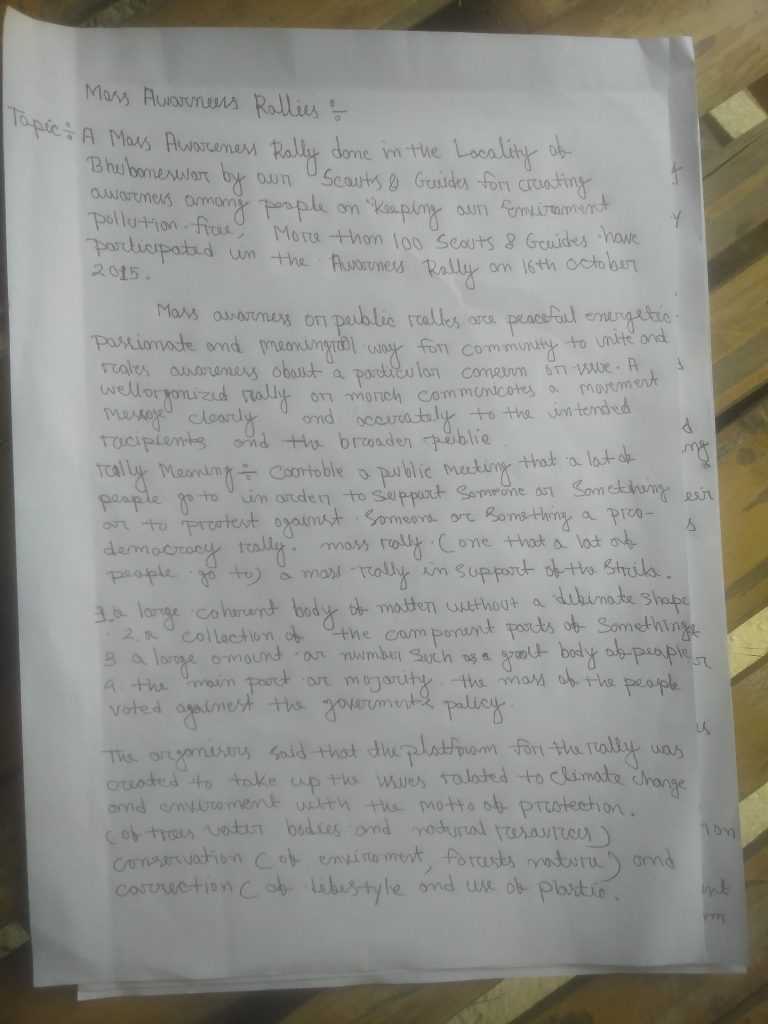 Mass Awarness Rallies ÷
Topic ÷ A Mass Awareness Rally done in the Locality of
Bhubaneswar by our Scouts & Guides for creating
awarness among people on "Keeping our Envirament
pollution free, More than 100 Scouts & Guides have
participated in the Awarness Rally on 16th October
2015.
Mass awarness or public rallies are peaceful energetic
passionate and meaningful way for community to unite and
awareness about a particular concern or issue. A
wellorganized rally or march communicates a movement
message clearly and accurately to the intended
racipients and the broader public
rally Meaning ÷ a public meeting that a lot of
people go to in order to support someone or something
or to protest against someone or something a pro-
democracy rally. mass rally (one that a lot of
people go to) a mass rally in support of the strike.
1. a large coherent body of matter without a dibinate shape
2. a collection of the component parts of Something
3. a large amount or number such as a great body of people
4. the main part or majority. the mass of the people
voted against the goverment's policy.
The organisers said that the platform for the rally was
created to take up the issues ralated to climate change
and enviroment with the motto of protection.
(of trees water bodies and natural resources)
conservation (of enviroment, forests nature) and
correction (of lifestyle and use of plastic.